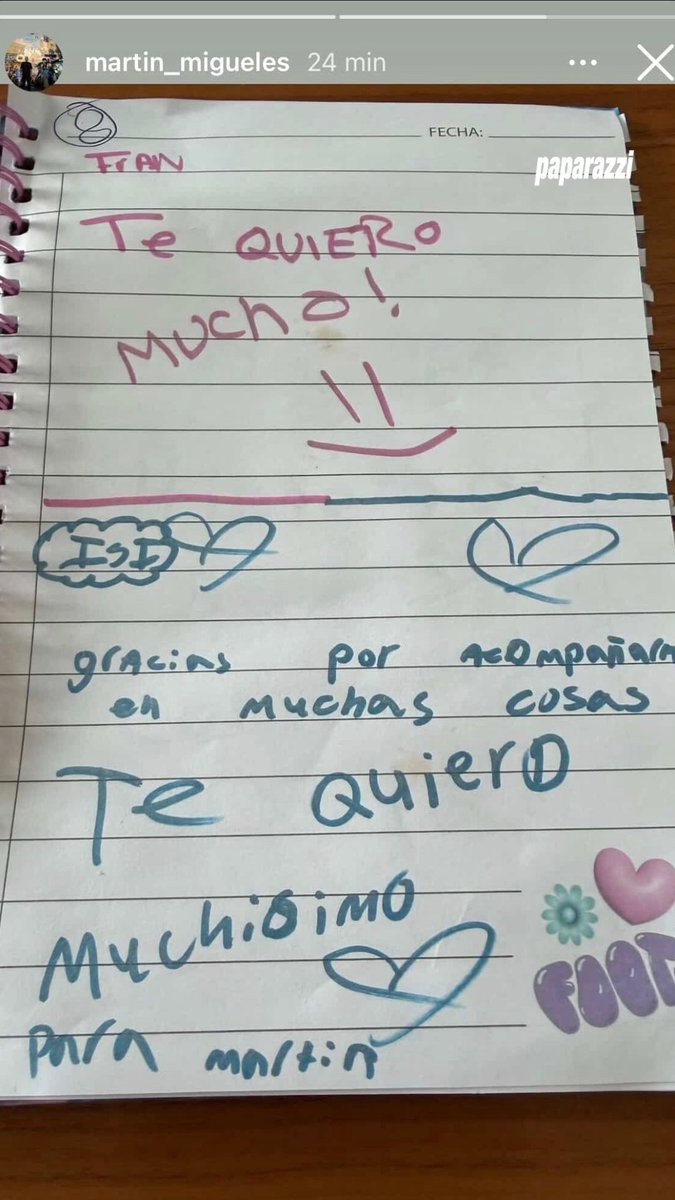 martin_migueles 24 min
FECHA:
paparazzi
FraN
Te QUIERO
MUChO!
IsI
grAcias por AcOmpañarm
en muchas cosas
Te QuierO
MuchisiMO
FOOT
para martin